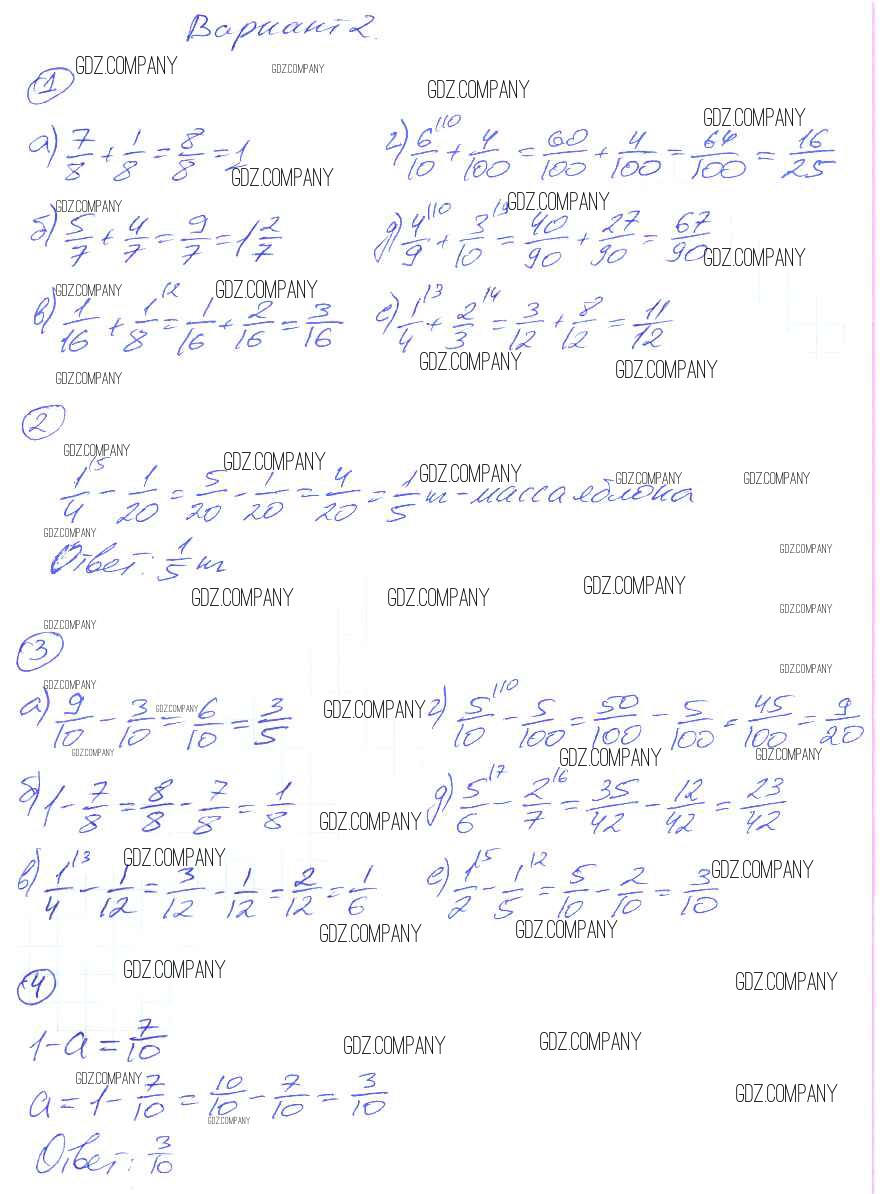 Вариант 2.
GDZ.COMPANY GDZ.COMPANY
1 GDZ.COMPANY
GDZ.COMPANY
а) 7/8 + 1/8 = 8/8 = 1 г) 6/10 + 4/100 = 60/100 + 4/100 = 64/100 = 16/25
GDZ.COMPANY
GDZ.COMPANY GDZ.COMPANY
б) 5/7 + 4/7 = 9/7 = 1 2/7 д) 4/9 + 3/10 = 40/90 + 27/90 = 67/90
GDZ.COMPANY
GDZ.COMPANY GDZ.COMPANY
в) 1/16 + 1/8 = 1/16 + 2/16 = 3/16 е) 1/4 + 2/3 = 3/12 + 8/12 = 11/12
GDZ.COMPANY GDZ.COMPANY GDZ.COMPANY
2
GDZ.COMPANY GDZ.COMPANY GDZ.COMPANY GDZ.COMPANY GDZ.COMPANY
1/4 - 1/20 = 5/20 - 1/20 = 4/20 = 1/5 кг - масса яблока
GDZ.COMPANY GDZ.COMPANY
Ответ: 1/5 кг
GDZ.COMPANY GDZ.COMPANY GDZ.COMPANY
GDZ.COMPANY GDZ.COMPANY
3
GDZ.COMPANY GDZ.COMPANY
а) 9/10 - 3/10 = 6/10 = 3/5 г) 5/10 - 5/100 = 50/100 - 5/100 = 45/100 = 9/20
GDZ.COMPANY GDZ.COMPANY
GDZ.COMPANY GDZ.COMPANY GDZ.COMPANY
б) 1 - 7/8 = 8/8 - 7/8 = 1/8 д) 5/6 - 2/7 = 35/42 - 12/42 = 23/42
GDZ.COMPANY
GDZ.COMPANY GDZ.COMPANY
в) 1/4 - 1/12 = 3/12 - 1/12 = 2/12 = 1/6 е) 1/2 - 1/5 = 5/10 - 2/10 = 3/10
GDZ.COMPANY GDZ.COMPANY
4 GDZ.COMPANY GDZ.COMPANY
1 - a = 7/10
GDZ.COMPANY GDZ.COMPANY
GDZ.COMPANY GDZ.COMPANY
a = 1 - 7/10 = 10/10 - 7/10 = 3/10
GDZ.COMPANY
Ответ: 3/10